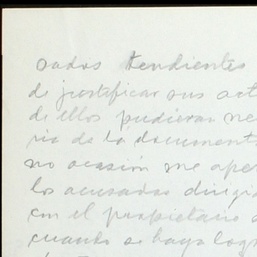 sados tendientes
de justificar sus act
de ellos pudieran ne
ria de la document
no ocasión me aper
los acusados dirigi
con el propietario
cuando se haya log